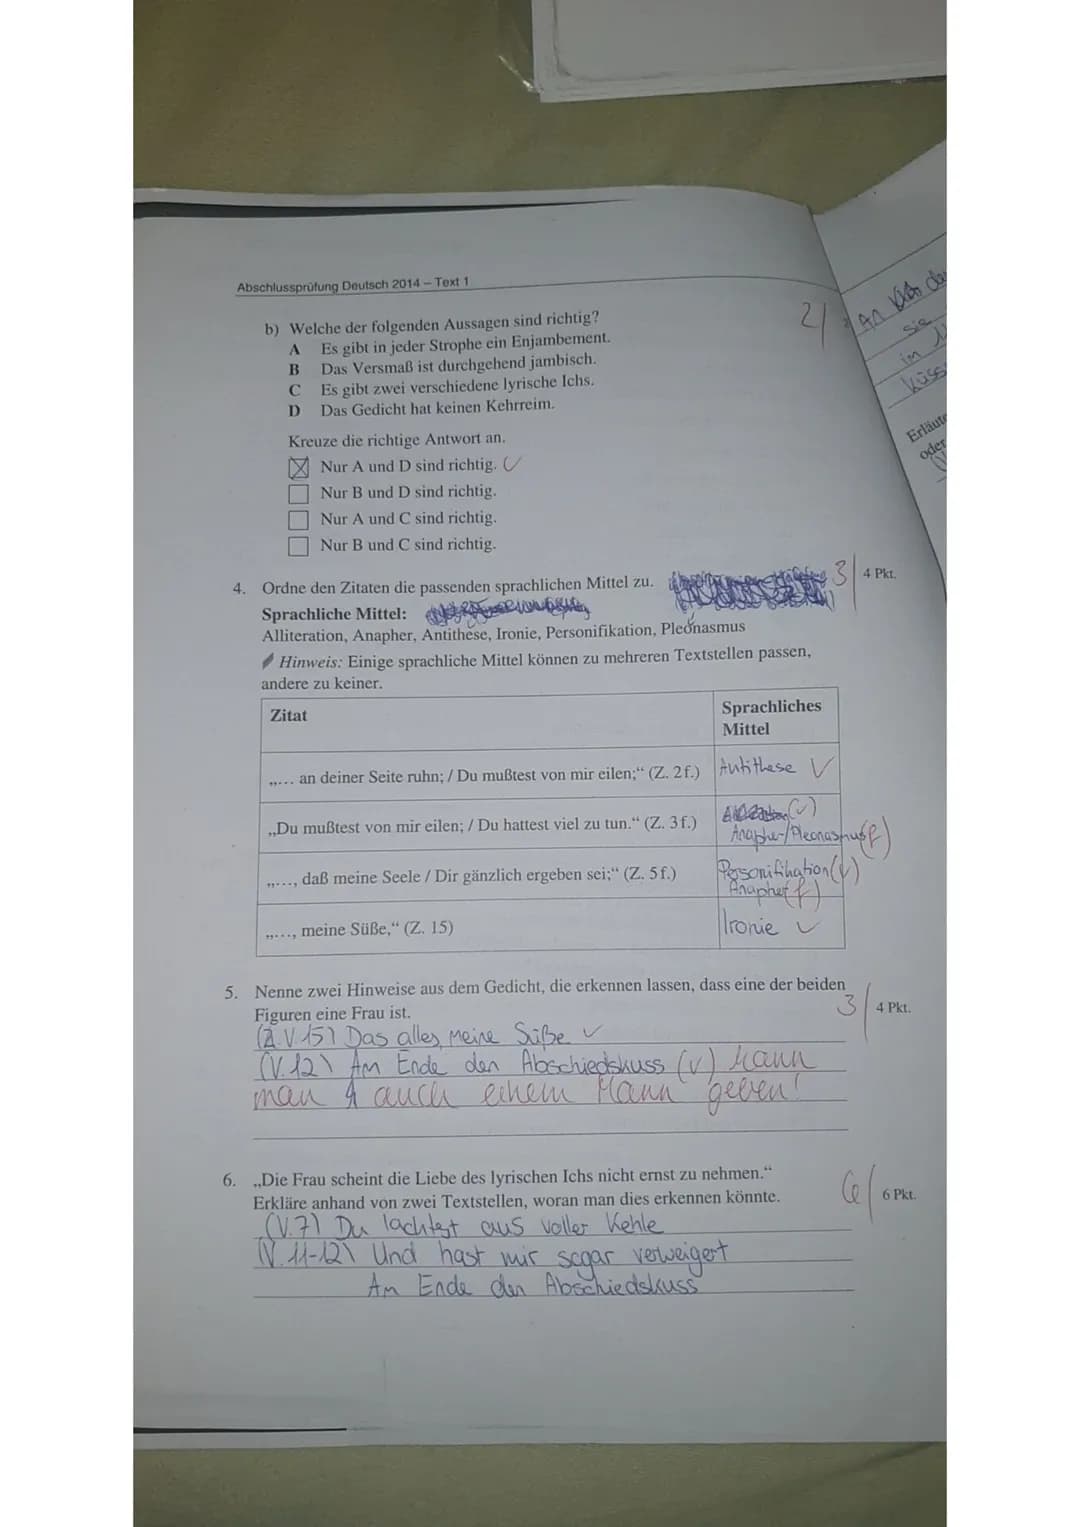 Abschlussprüfung Deutsch 2014 – Text 1
b) Welche der folgenden Aussagen sind richtig?
2/
A Es gibt in jeder Strophe ein Enjambement.
B Das Versmaß ist durchgehend jambisch.
C Es gibt zwei verschiedene lyrische Ichs.
D Das Gedicht hat keinen Kehrreim.
Kreuze die richtige Antwort an.
☒ Nur A und D sind richtig. ✓
☐ Nur B und D sind richtig.
☐ Nur A und C sind richtig.
☐ Nur B und C sind richtig.
4. Ordne den Zitaten die passenden sprachlichen Mittel zu. 3/ 4 Pkt.
Sprachliche Mittel:
Alliteration, Anapher, Antithese, Ironie, Personifikation, Pleonasmus
Hinweis: Einige sprachliche Mittel können zu mehreren Textstellen passen,
andere zu keiner.
Zitat
Sprachliches
Mittel
„… an deiner Seite ruhn; / Du mußtest von mir eilen;“ (Z. 2 f.) Antithese ✓
„Du mußtest von mir eilen; / Du hattest viel zu tun.“ (Z. 3 f.)
(✓)
Anapher/Pleonasmus (f)
„…, daß meine Seele / Dir gänzlich ergeben sei;“ (Z. 5 f.)
Personifikation (✓)
Anapher (f)
„…, meine Süße,“ (Z. 15) Ironie ✓
5. Nenne zwei Hinweise aus dem Gedicht, die erkennen lassen, dass eine der beiden
Figuren eine Frau ist. 3/ 4 Pkt.
V. 15) Das alles, meine Süße ✓
(V. 12) Am Ende den Abschiedskuss (✓) kann
man auch einem Mann geben!
6. „Die Frau scheint die Liebe des lyrischen Ichs nicht ernst zu nehmen.“
Erkläre anhand von zwei Textstellen, woran man dies erkennen könnte. 6/ 6 Pkt.
(V. 7) Du lachtest aus voller Kehle
(V. 11-12) Und hast mir sogar verweigert
Am Ende den Abschiedskuss
An
sie
im
küss
Erläute
oder